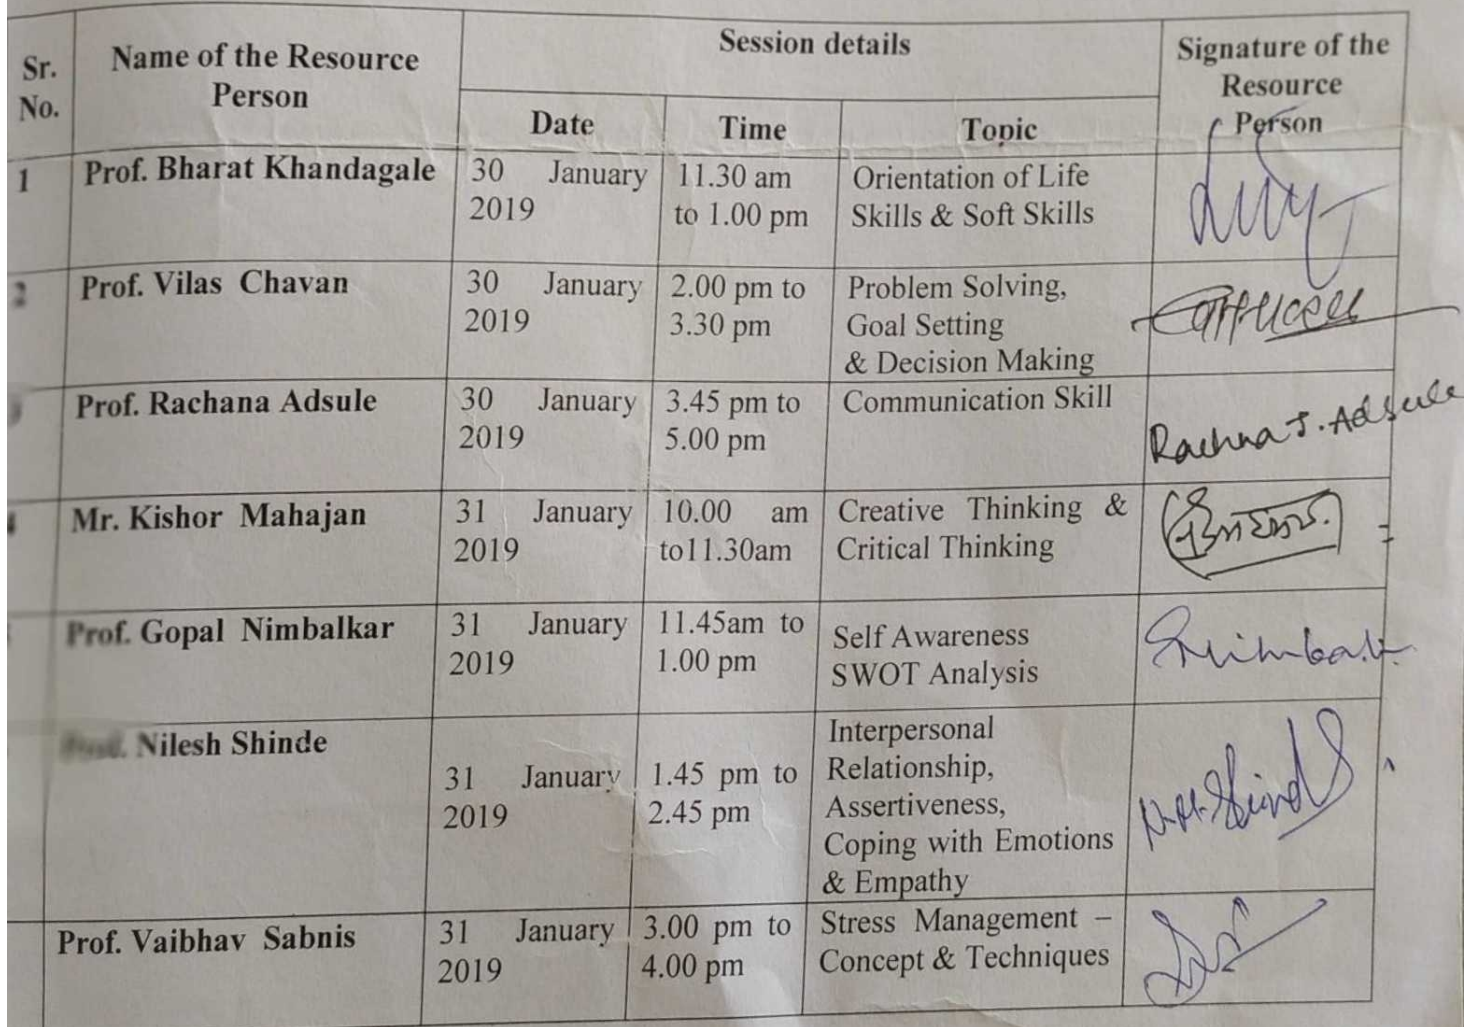 Sr. No.
Name of the Resource Person
Session details
Signature of the Resource Person
Date
Time
Topic
1
Prof. Bharat Khandagale
30 January
2019
11.30 am
to 1.00 pm
Orientation of Life
Skills & Soft Skills
2
Prof. Vilas Chavan
30 January
2019
2.00 pm to
3.30 pm
Problem Solving,
Goal Setting
& Decision Making
Prof. Rachana Adsule
30 January
2019
3.45 pm to
5.00 pm
Communication Skill
Rachna J. Adsule
4
Mr. Kishor Mahajan
31 January
2019
10.00 am
to11.30am
Creative Thinking &
Critical Thinking
Prof. Gopal Nimbalkar
31 January
2019
11.45am to
1.00 pm
Self Awareness
SWOT Analysis
Prof. Nilesh Shinde
31 January
2019
1.45 pm to
2.45 pm
Interpersonal
Relationship,
Assertiveness,
Coping with Emotions
& Empathy
Prof. Vaibhav Sabnis
31 January
2019
3.00 pm to
4.00 pm
Stress Management –
Concept & Techniques